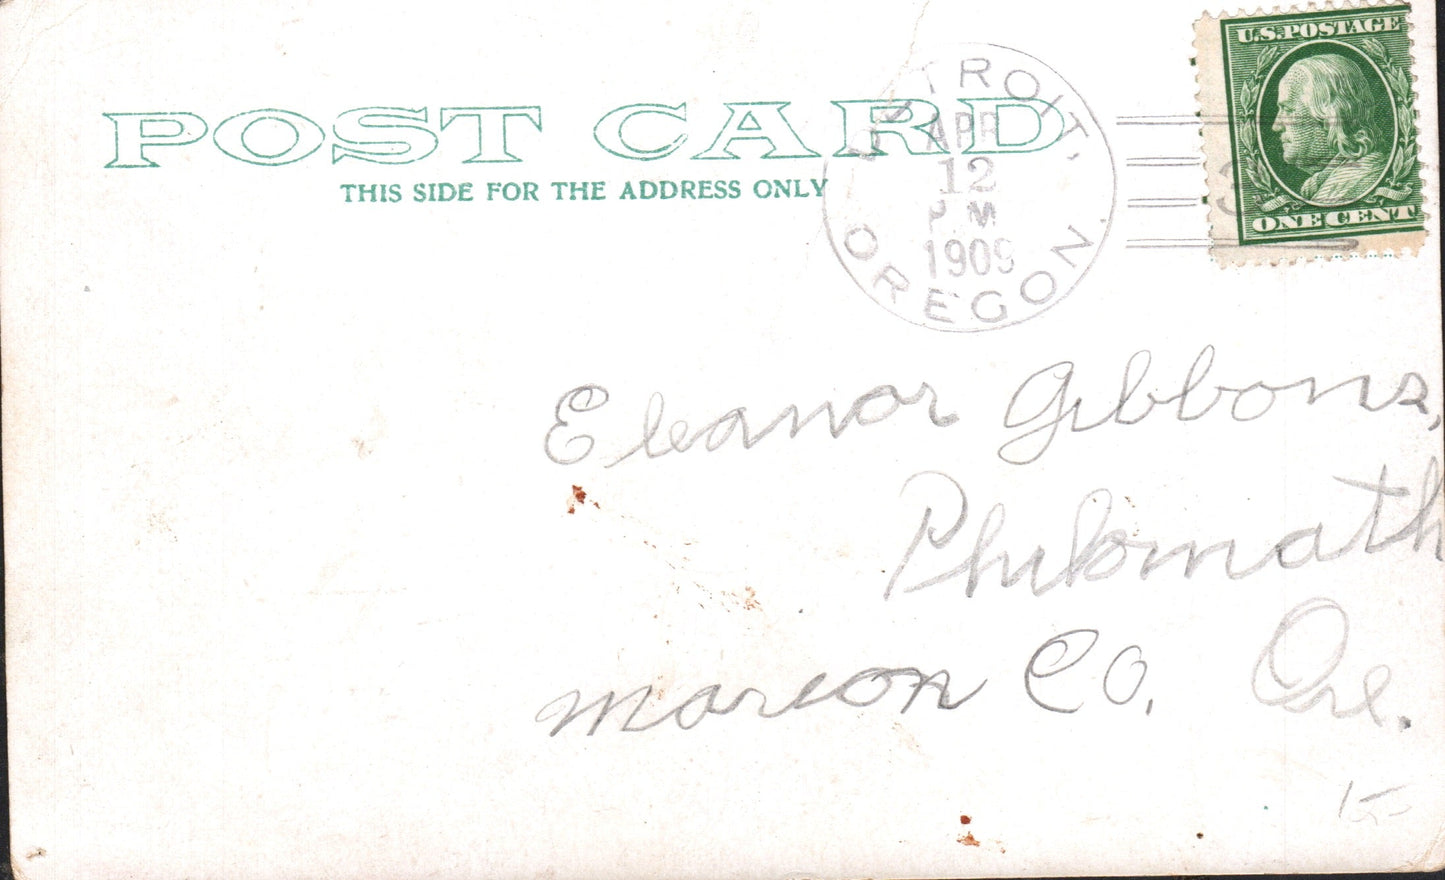 POST CARD
THIS SIDE FOR THE ADDRESS ONLY
DETROIT,
OREGON.
APR
12
P.M
1909
3
U.S. POSTAGE
ONE CENT
Eleanor Gibbons,
Philomath
Marion Co. Ore.
15-